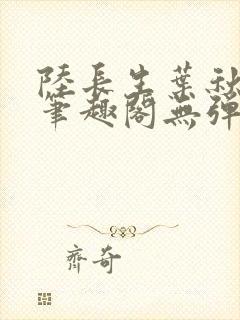 陸長生葉秋
筆趣閣無彈
齊奇